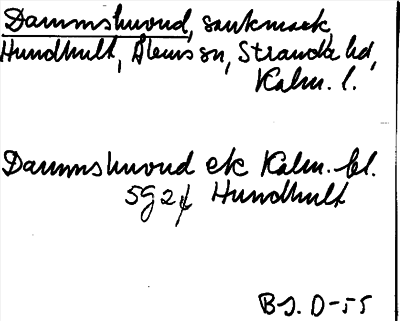 Dammshuvud, sankmark,
Hundhult, Ålems sn, Stranda hd,
Kalm. l.
Dammshuvud ek Kalm. bl.
5G 2f Hundhult
B J. D-55